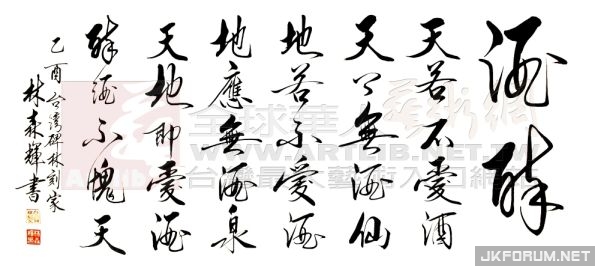 酒酔
天若不愛酒
天上無酒仙
地若不愛酒
地應無酒泉
天地即愛酒
酔酒不愧天
乙酉台灣碑林刻家
林森輝書
全球華人藝術網
WWW.ARTLIB.NET.TW
JKFORUM.NET